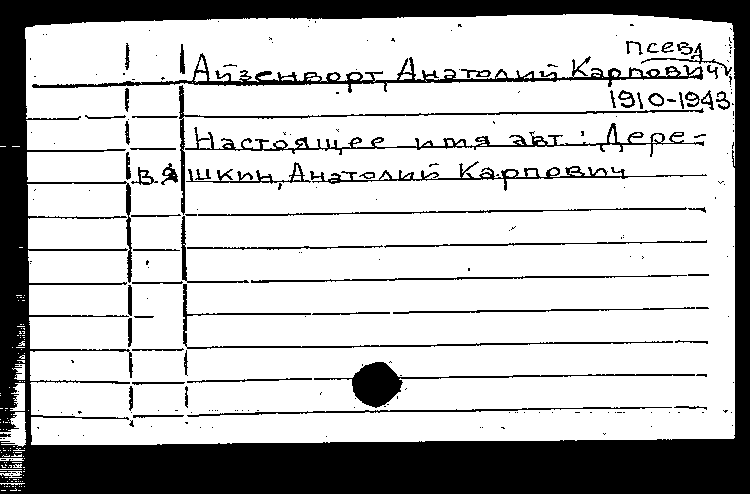 псевд
Айзенворт, Анатолий Карпович
1910-1943
Настоящее имя авт.: Дере=
вяшкин, Анатолий Карпович